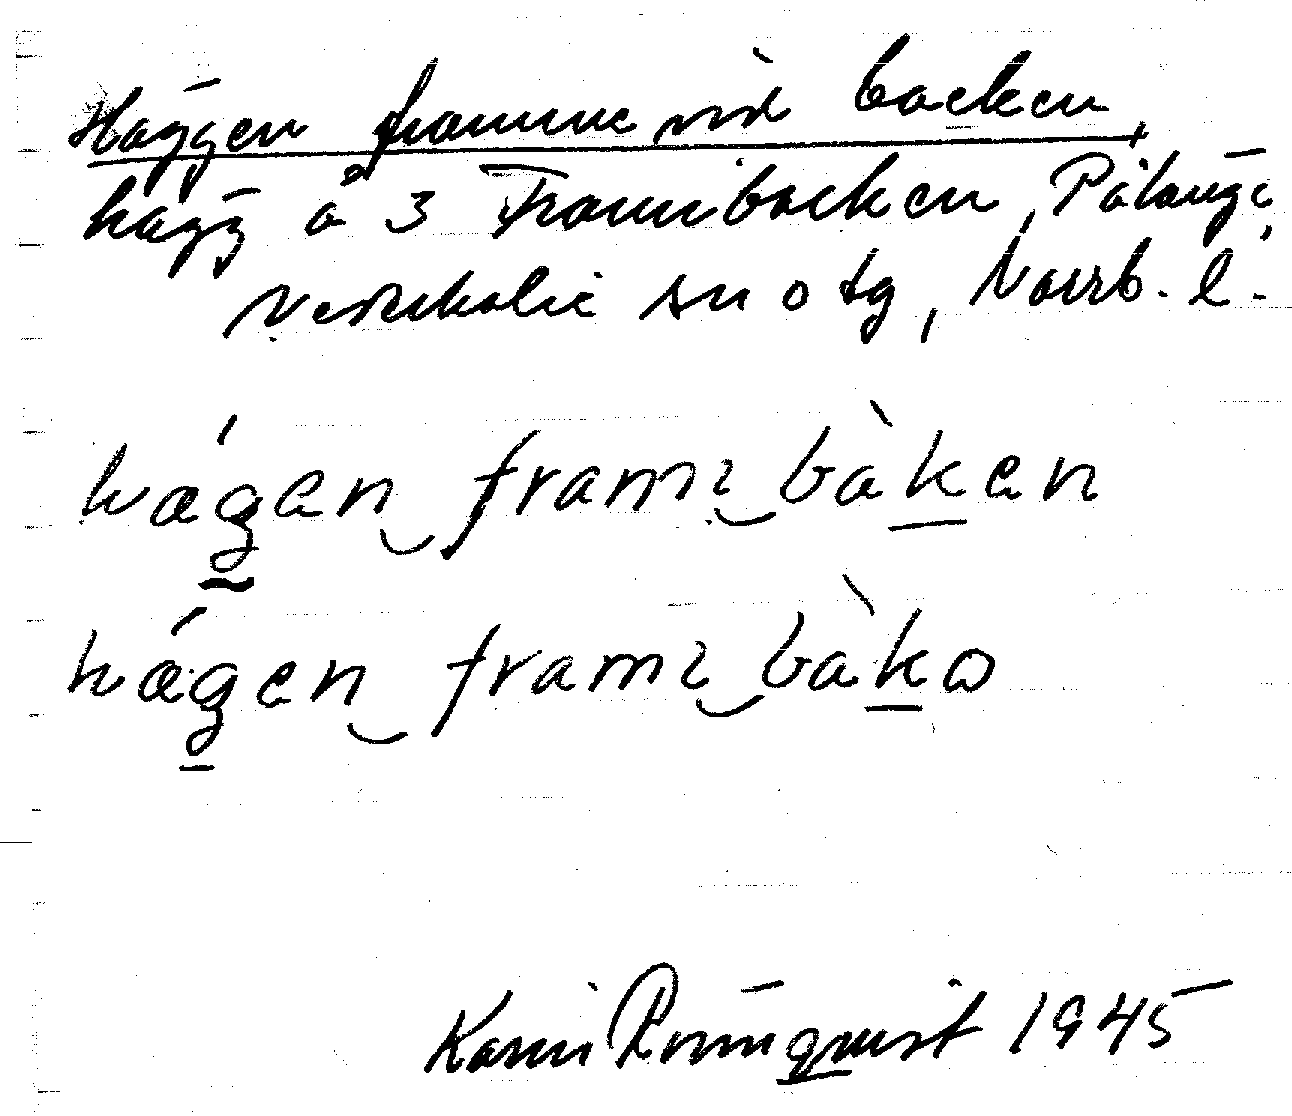 Häggen framme vid backen,
hägg å 3 Frambacken, Pålänge,
Nederkalix sn o tg, Norrb. l.
hägen frami bàken
hägen frami bàka
Karin Rönnquist 1945